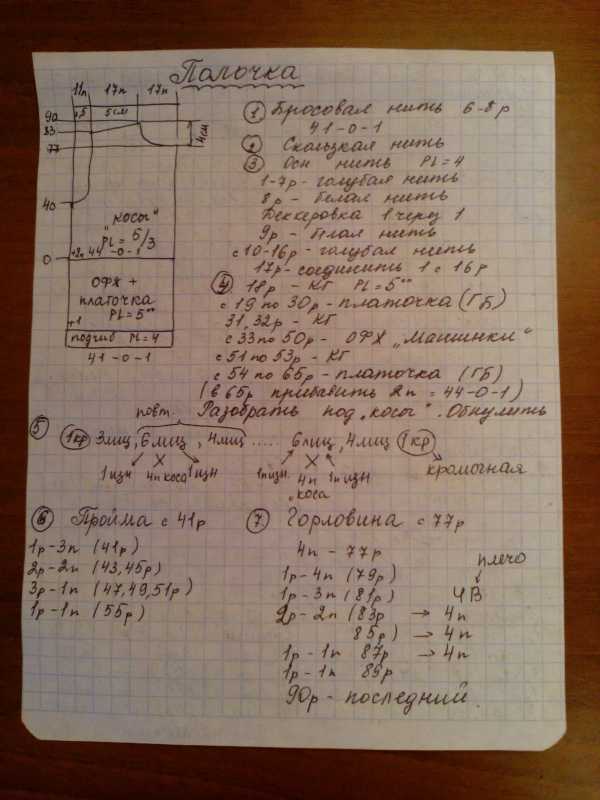 Полочка
11п 17п 17п
90
83
77
40
0
+5
5см
4см
"косы"
PL = 5/3
+3п 44-0-1
ОФХ +
платочка
PL = 5**
+1
подгиб PL = 4
41-0-1
① Бросовая нить 6-8р
41-0-1
② Скользкая нить
③ Осн нить PL = 4
1-7р - голубая нить
8р - белая нить
Беккеровка 1 через 1
9р - белая нить
с 10-16р - голубая нить
17р - соединить 1 с 16р
④ 18р - КГ PL = 5**
с 19 по 30р - платочка (ГБ)
31,32р - КГ
с 33 по 50р - ОФХ "Машинки"
с 51 по 53р - КГ
с 54 по 65р - платочка (ГБ)
(в 65р прибавить 2п = 44-0-1)
Разобрать под "косы". Обнулить
повт.
⑤ 1кр 3лиц, 6лиц, 4лиц ..... 6лиц, 4лиц 1кр
1изн 4п коса 1изн 1п изн 4п коса 1п изн кромочная
⑥ Пройма с 41р
1р-3п (41р)
2р-2п (43,45р)
3р-1п (47,49,51р)
1р-1п (55р)
⑦ Горловина с 77р
4п - 77р
1р-4п (79р)
1р-3п (81р)
2р-2п (83р → 4п
85р) → 4п
1р-1п 87р → 4п
1р-1п 89р
90р - последний.
плечо
ЧВ